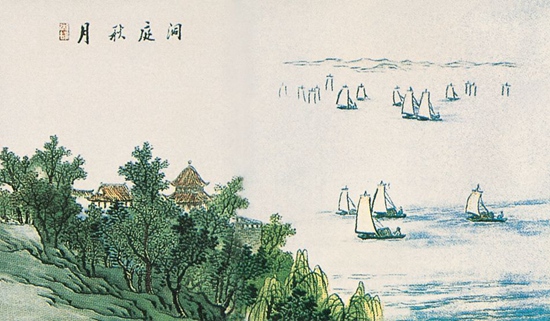 洞庭秋月